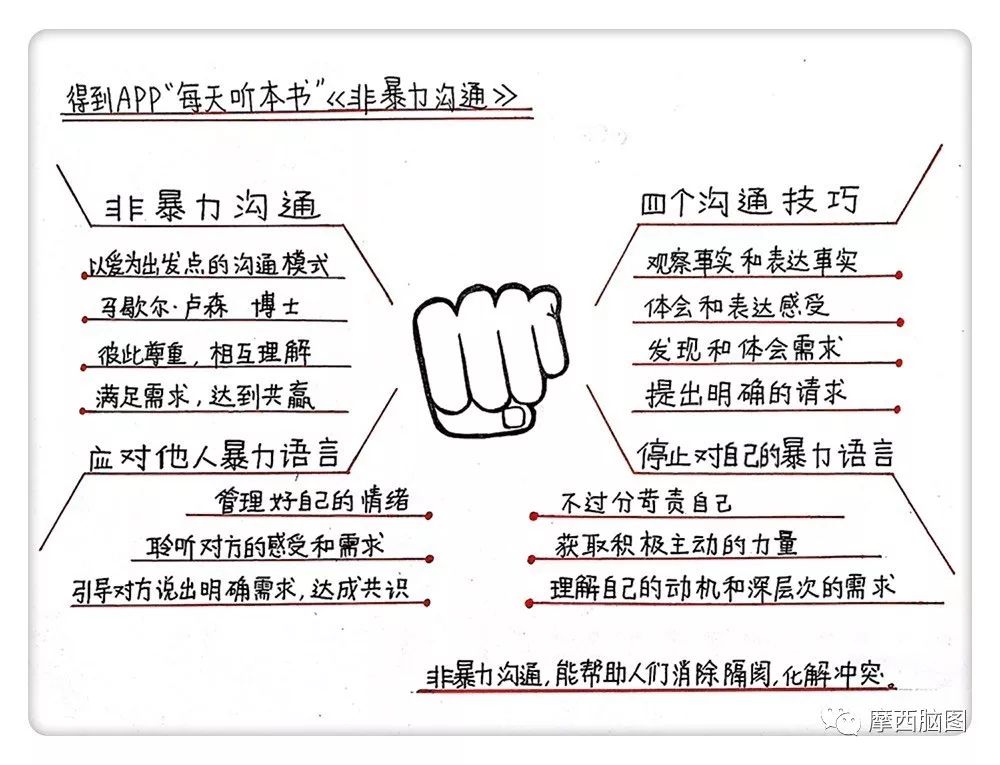 得到APP“每天听本书”《非暴力沟通》
非暴力沟通
以爱为出发点的沟通模式
马歇尔·卢森 博士
彼此尊重，相互理解
满足需求，达到共赢
四个沟通技巧
观察事实和表达事实
体会和表达感受
发现和体会需求
提出明确的请求
应对他人暴力语言
管理好自己的情绪
聆听对方的感受和需求
引导对方说出明确需求，达成共识
停止对自己的暴力语言
不过分苛责自己
获取积极主动的力量
理解自己的动机和深层次的需求
非暴力沟通，能帮助人们消除隔阂，化解冲突。
摩西脑图